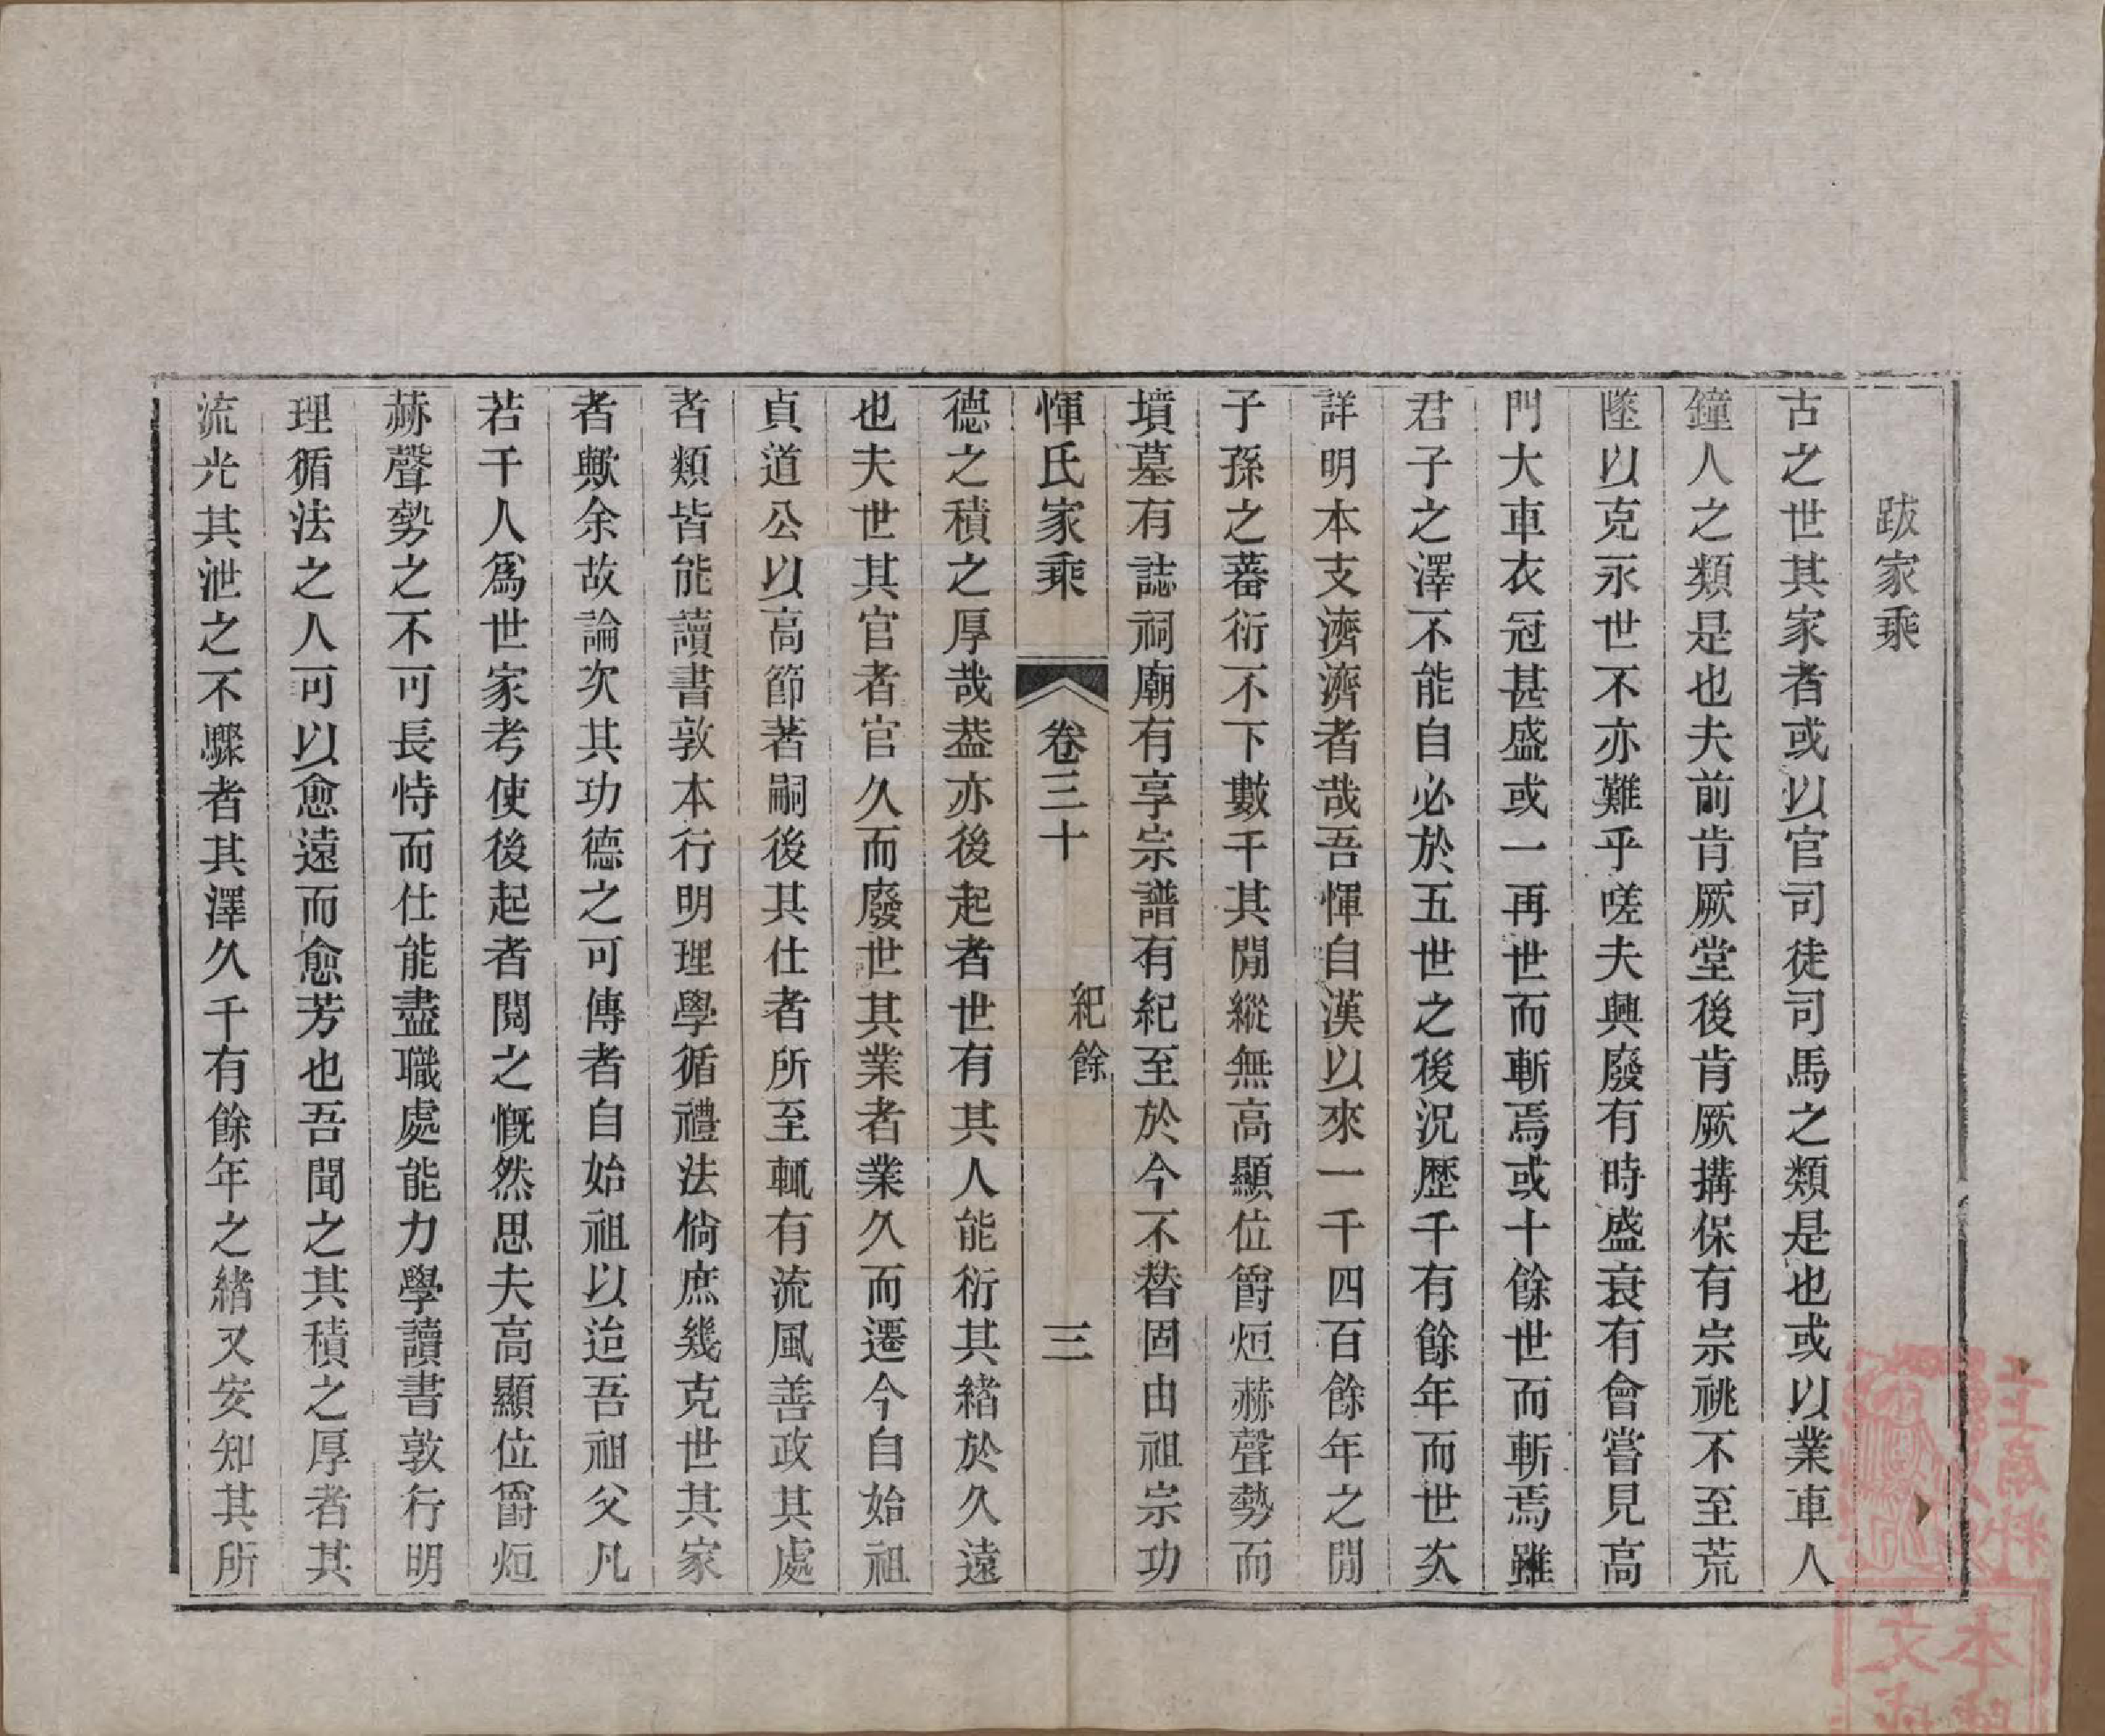 跋家乘
古之世其家者或以官司徒司馬之類是也或以業車人
鐘人之類是也夫前肯厥堂後肯厥搆保有宗祧不至荒
墜以克永世不亦難乎嗟夫興廢有時盛衰有會嘗見高
門大車衣冠甚盛或一再世而斬焉或十餘世而斬焉雖
君子之澤不能自必於五世之後況歷千有餘年而世次
詳明本支濟濟者哉吾惲自漢以來一千四百餘年之閒
子孫之蕃衍不下數千其閒縱無高顯位爵烜赫聲勢而
墳墓有誌祠廟有享宗譜有紀至於今不替固由祖宗功
惲氏家乘 卷三十 紀餘 三
德之積之厚哉葢亦後起者世有其人能衍其緒於久遠
也夫世其官者官久而廢世其業者業久而遷今自始祖
貞道公以高節著嗣後其仕者所至輒有流風善政其處
者類皆能讀書敦本行明理學循禮法倘庶幾克世其家
者歟余故論次其功德之可傳者自始祖以迨吾祖父凡
若干人爲世家考使後起者閱之慨然思夫高顯位爵烜
赫聲勢之不可長恃而仕能盡職處能力學讀書敦行明
理循法之人可以愈遠而愈芳也吾聞之其積之厚者其
流光其泄之不驟者其澤久千有餘年之緒又安知其所